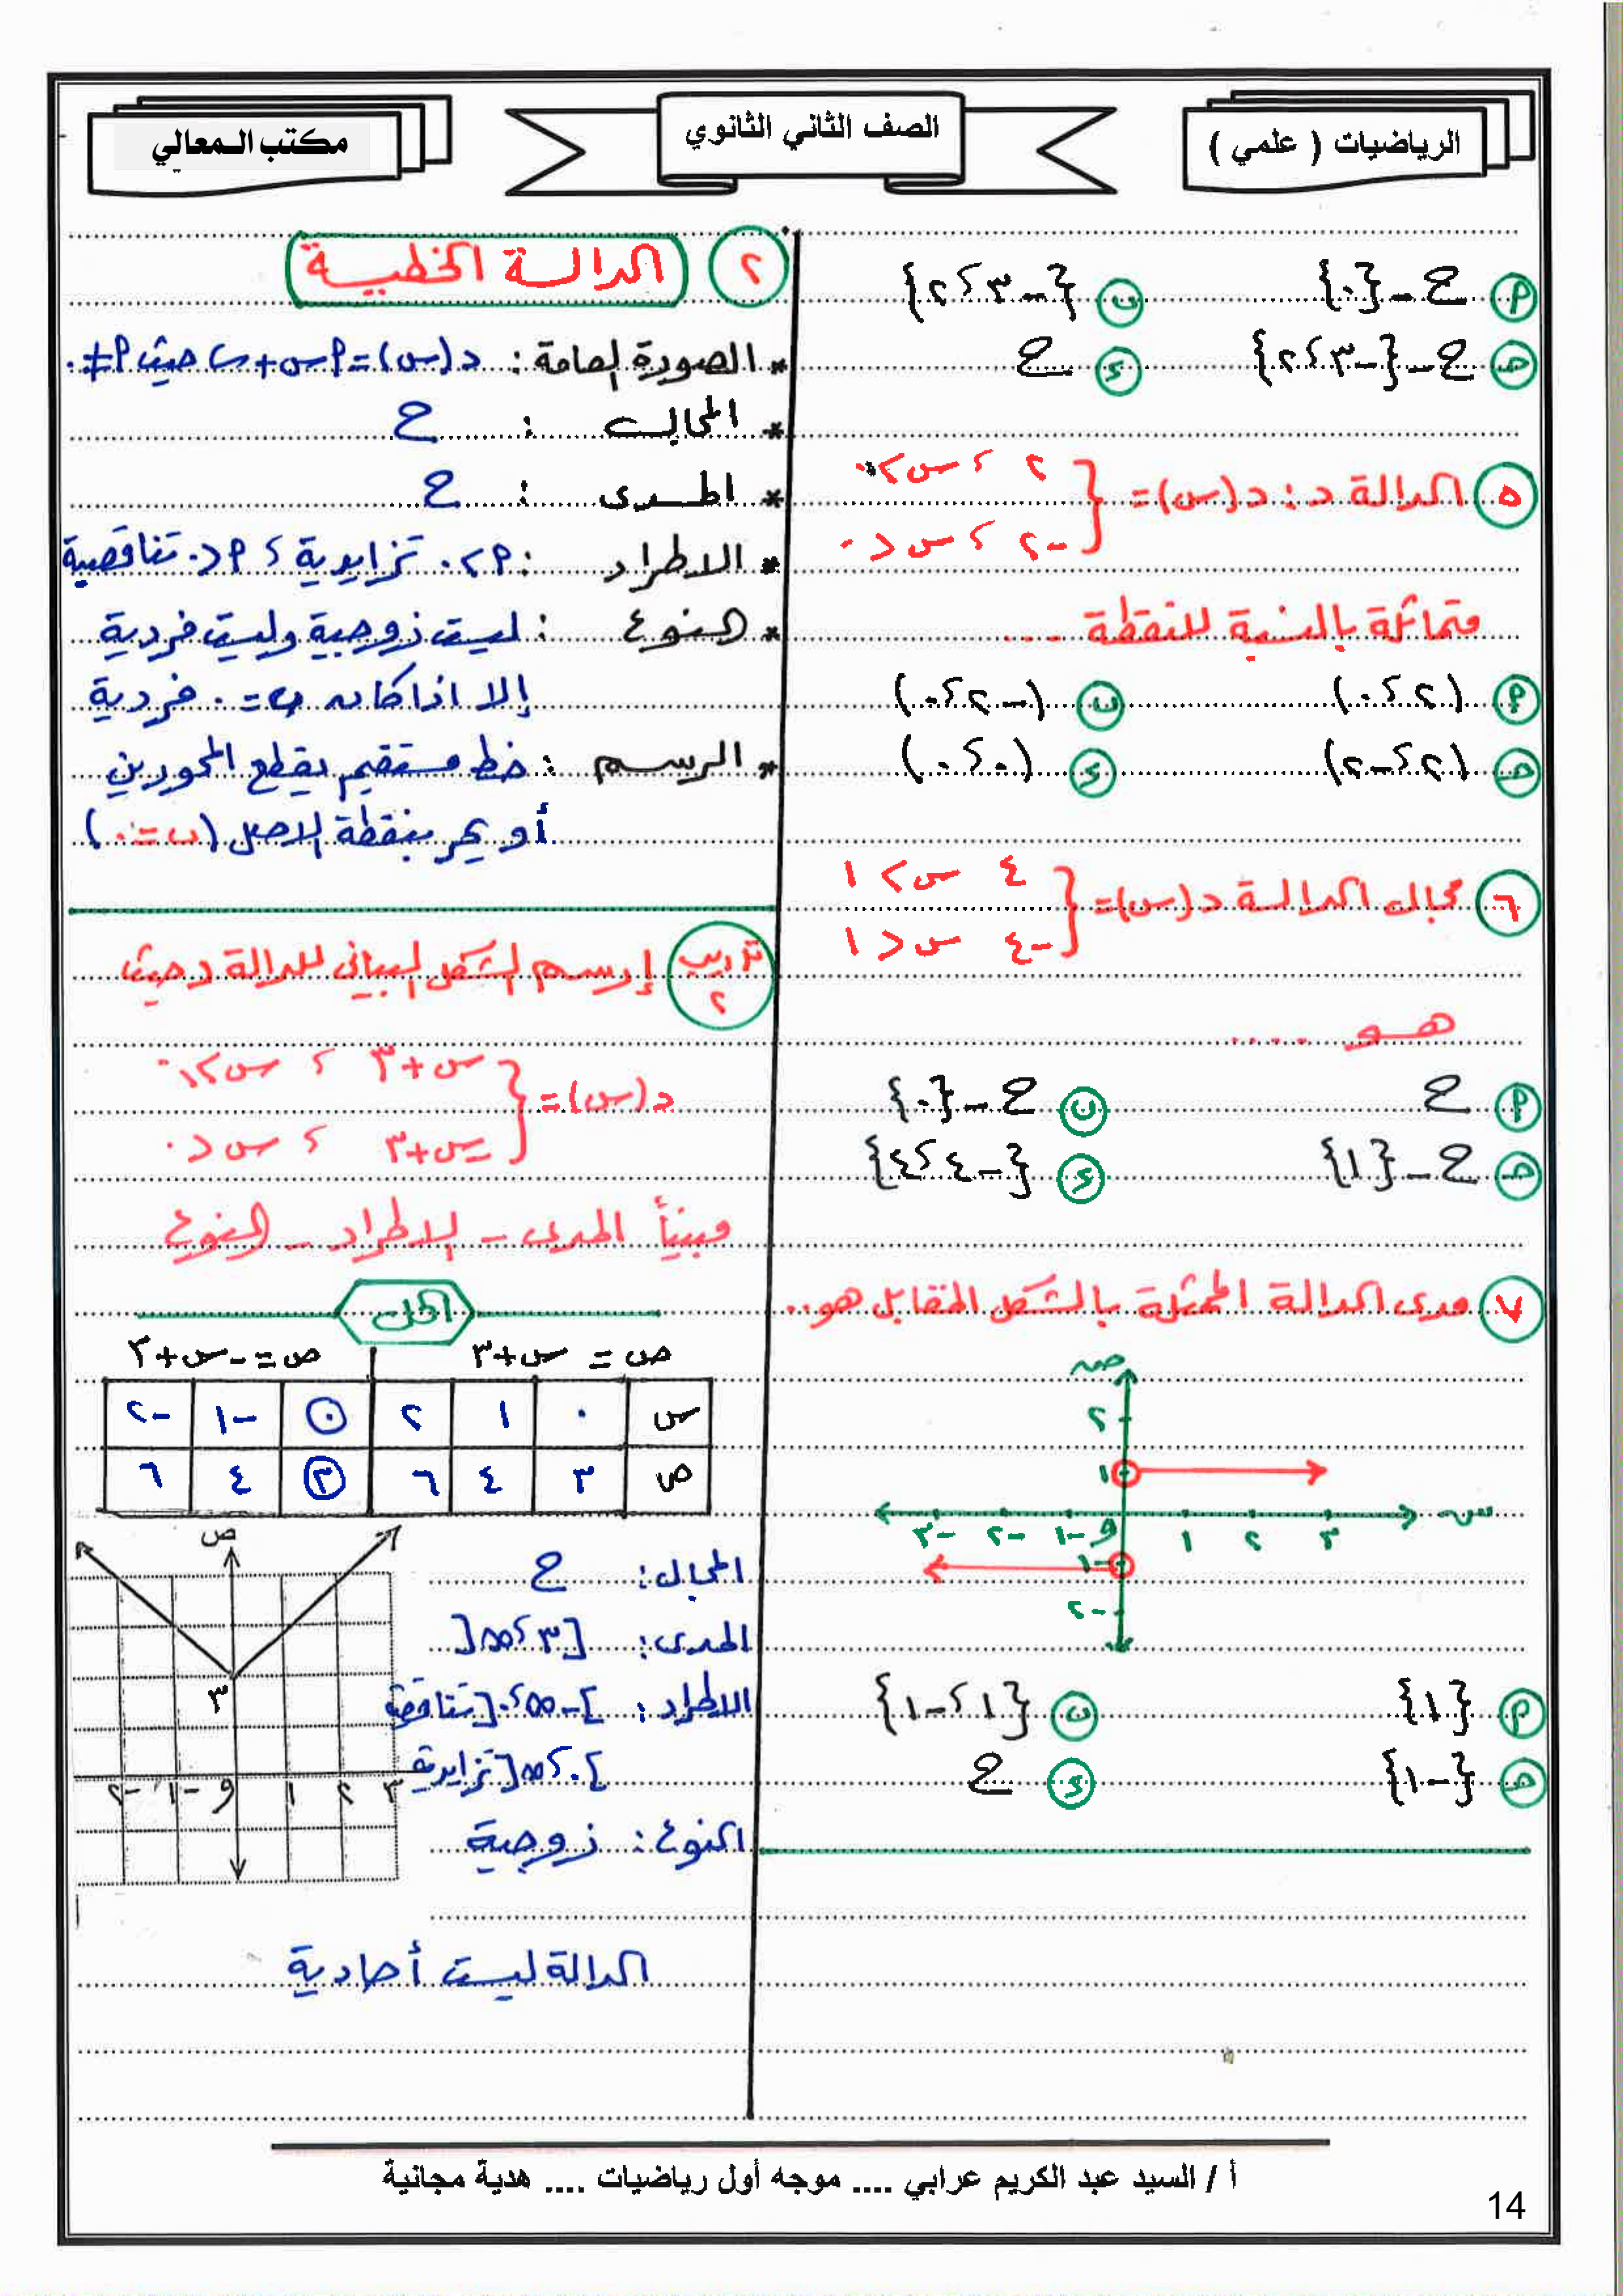 الرياضيات ( علمي )
الصف الثاني الثانوي
مكتب المعالي
أ ح - {٠}
ب {-٣ ، ٢}
ج ح - {-٣ ، ٢}
د ح
٥ الدالة د : د(س) = { ٢ ، س > ٠
-٢ ، س < ٠
متماثلة بالنسبة للنقطة ...
أ (٢ ، ٠)
ب (-٢ ، ٠)
ج (٢ ، -٢)
د (٠ ، ٠)
٦ مجال الدالة د(س) = { ٤ س > ١
-٤ س < ١
هو ....
أ ح
ب ح - {٠}
ج ح - {١}
د {-٤ ، ٤}
٧ مدى الدالة الممثلة بالشكل المقابل هو ..
ص
٢
١
-٣ -٢ -١ و ١ ٢ ٣ س
-١
-٢
أ {١}
ب {١ ، -١}
ج {-١}
د ح
٢ الدالة الخطية
* الصورة العامة : د(س) = أ س + ب حيث أ ≠ ٠
* المجال : ح
* المدى : ح
* الاطراد : أ > ٠ تزايدية ، أ < ٠ تناقصية
* النوع : ليست زوجية وليست فردية
إلا اذا كان ب = ٠ فردية
* الرسم : خط مستقيم يقطع المحورين
أو يمر بنقطة الاصل (ب = ٠)
تدريب ٢ إرسم الشكل البياني للدالة د حيث
د(س) = { س + ٣ ، س ≥ ٠
-س + ٣ ، س < ٠
مبيناً المدى - الاطراد - النوع
الحل
ص = س + ٣
ص = -س + ٣
س ٠ ١ ٢ ٠ -١ -٢
ص ٣ ٤ ٦ ٣ ٤ ٦
ص
٣
-٢ -١ و ١ ٢ ٣
المجال : ح
المدى : [٣ ، ∞[
الاطراد : ]-∞ ، ٠[ تناقصية
]٠ ، ∞[ تزايدية
النوع : زوجية
الدالة ليست أحادية
أ / السيد عبد الكريم عرابي .... موجه أول رياضيات .... هدية مجانية
14